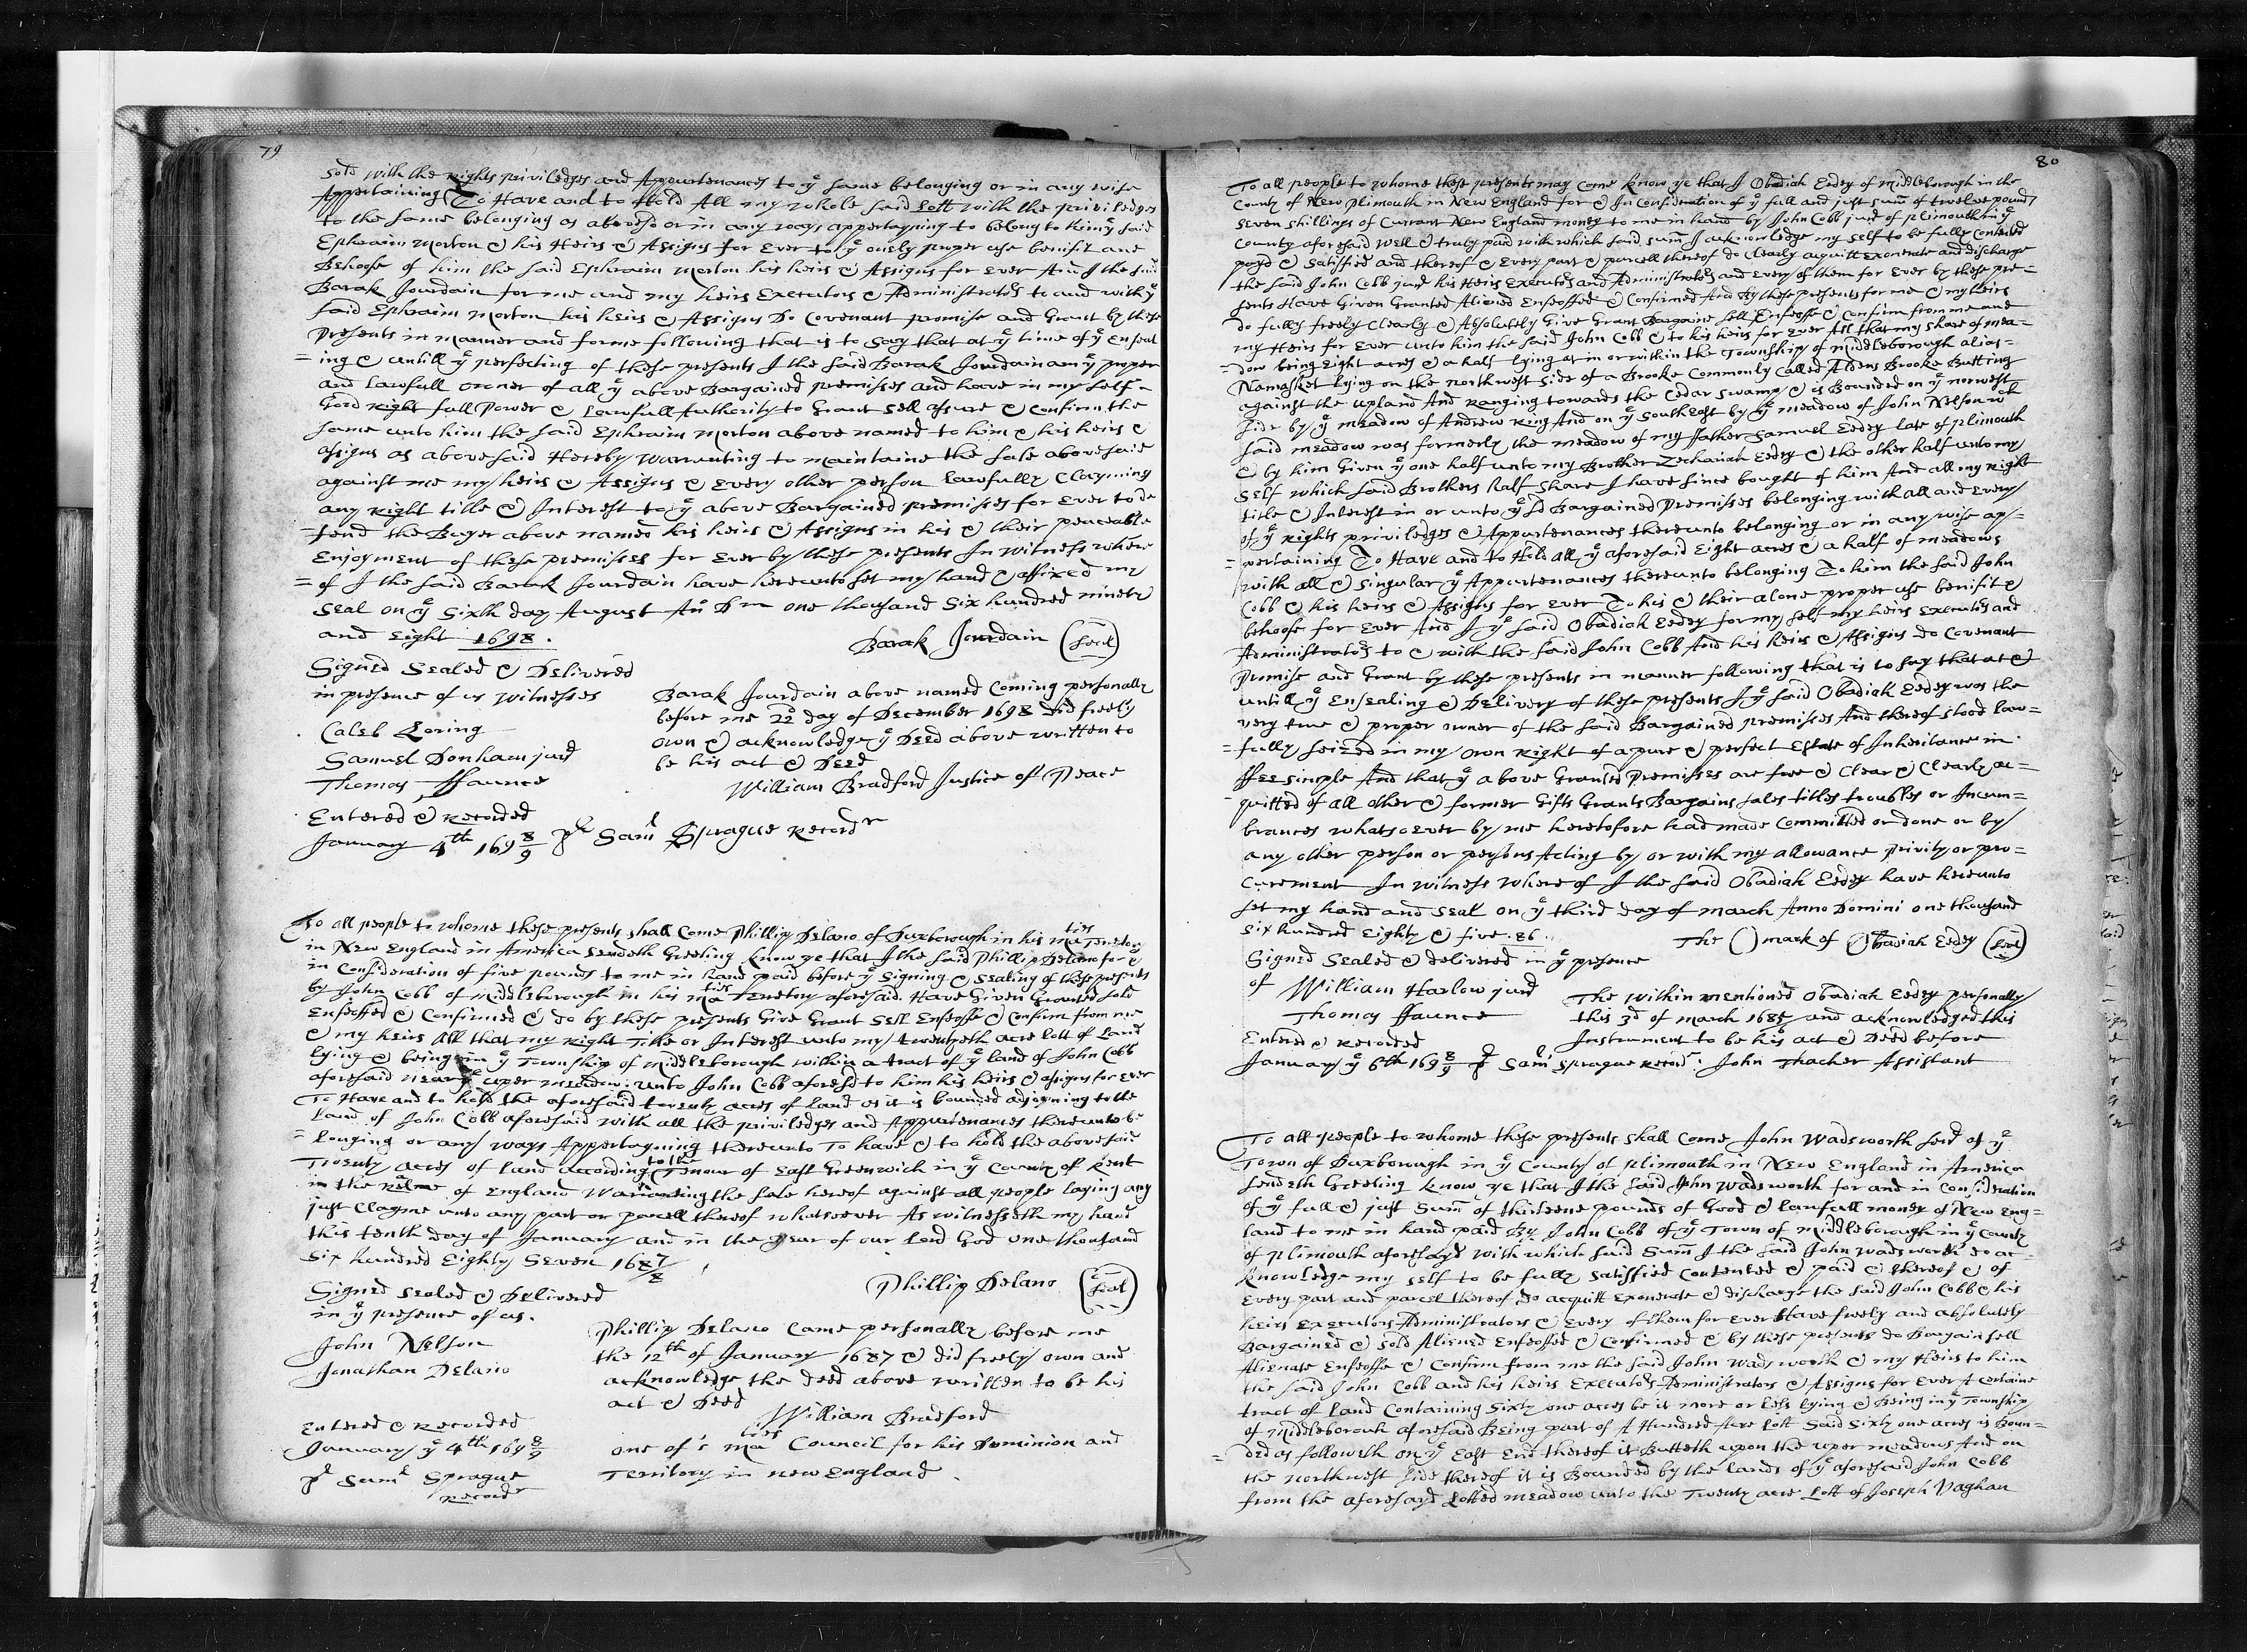 79
Sold with the rights priviledges and Appurtenances to yͤ same belonging or in any wise
Appertaining To Have and to Hold All my whole said Lott with the priviledges
to the same belonging as abovesd or in any ways appertayning to belong to him yͤ said
Ephraim Morton & his Heirs & Assigns for Ever to yͤ onely proper use benifit and
Behoofe of him the said Ephraim Morton his heirs & Assigns for Ever And I the said
Barak Jourdain for me and my heirs Executors & Administratoꝛs to and with yͤ
said Ephraim Morton his heirs & Assigns Do Covenant promise and Grant by these
Presents in manner and forme following that is to say that at yͤ time of yͤ Enseal
=ing & untill yͤ perfecting of these presents I the said Barak Jourdain am yͤ proper
and lawfull owner of all yͤ above Bargained premisses and have in my self
Good right full Power & Lawfull Authority to Grant sell assure & Confirm the
same unto him the said Ephraim Morton above named to him & his heirs &
assigns as abovesaid Hereby Warranting to maintaine the sale abovesaid
against me my heirs & Assigns & Every other person Lawfully Clayming
any right title & Interest to yͤ above Bargained premisses for Ever to de
=fend the Buyer above named his heirs & Assigns in his & their peaceable
Enjoyment of these premisses for Ever by these presents In Witness where
=of I the said Barak Jourdain have hereunto set my hand & affixed my
Seal on yͤ Sixth day August An͞o Dm one thousand Six hundred ninety
and Eight 1698. Barak Jourdain (Seal)
Signed Sealed & Delivered
in presence of us Witnesses
Caleb Loring
Samuel Donham junꝛ
Thomas ffaunce
Barak Jourdain above named Coming personally
before me 22ᵈ day of December 1698 did freely
own & acknowledge yͤ Deed above written to
be his act & Deed
William Bradford Justice of Peace
Entered & Recorded
January 4th 169 8/9 pʳ Samˡ Sprague Recordʳ
To all people to whome these presents shall Come Phillip Delano of Duxborough in his maᵗⁱᵉˢ Teretory
in New England in America Sendeth Greeting know ye that I the said Phillip Delano for &
in Consideration of five pounds to me in hand paid before yͤ Signing & Sealing of these presents
by John Cobb of Middleborough in his maᵗⁱᵉˢ Teretory aforesaid. Have Given Granted sold
Enfeoffed & Confirmed & do by these presents Give Grant Sell Enfeoffe & Confirm from me
& my heirs All that my right Title or Interest unto my twentyeth acre lott of Land
lying & being in yͤ Township of Middleborough within a tract of yͤ land of John Cobb
aforesaid near yͤ uper meadow: unto John Cobb aforesd to him his heirs & assigns for Ever
To Have and to hold the aforesaid twenty acres of land as it is bounded adjoyning to the
Land of John Cobb aforesaid with all the priviledges and Appurtenances thereunto be
=longing or any ways Appertayning thereunto To have & to hold the abovesaid
Twenty acres of land according to the Tenour of East Greenwich in yͤ County of Kent
in the Relme of England Warranting the sale hereof against all people laying any
just Clayme unto any part or parcell thereof whatsoever As witnesseth my hand
this tenth day of January and in the year of our Lord God one thousand
Six hundred Eighty Seven 168 7/8
Phillip Delano (Seal)
Signed Sealed & Delivered
in yͤ presence of us.
John Nelson
Jonathan Delano
Phillip Delano Came personally before me
the 12th of January 1687 & did freely own and
acknowledge the deed above written to be his
act & Deed
William Bradford
one of s maᵗⁱᵉˢ Council for his Dominion and
Territory in new England
Entered & Recorded
January yͤ 4th 169 8/9
pʳ Samˡ Sprague
Recordʳ
80
To all people to whome these presents may Come know ye that I Obadiah Eedey of middleborough in the
County of New Plimouth in New England for & In Consideration of yͤ full and just sum͞ of twelve pound
Seven shillings of Currant New England money to me in hand by John Cobb junꝛ of plimouth in yͤ
County aforesaid Well & truly paid with which said sum͞ I acknowledge my self to be fully Contented
payd & satisfied and thereof & Every part & parcell thereof do Clearly acquitt Exonerate and discharge
the said John Cobb junꝛ his Heirs Executoꝛs and Administratoꝛs and Every of them for Ever by these pre=
sents Have Given Granted Aliened Enfeoffed & Confirmed And By these presents for me & my heirs
do fully freely Clearly & Absolutely Give Grant Bargaine Sell Enfeoffe & Confirm from me and
my Heirs for Ever unto him the said John Cobb & to his heirs for Ever All that my share of mea=
=dow being Eight acres & a half lying at in or within the Township of Middleborough alias=
Namasket lying on the northwest side of a Brooke Commonly Called Aldens Brooke Butting
against the upland And ranging towards the Cedar swamp & is Bounded on yͤ norwest
side by yͤ meadow of Andrew Ring And on yͤ Southeast by yͤ meadow of John Nelson wᶜʰ
said meadow was formerly the meadow of my ffather Samuel Eedey late of plimouth
& by him Given yͤ one half unto my Brother Zechariah Eedey & the other half unto my
Self which said Brothers half share I have since bought of him And all my right
title & Interest in or unto yͤ sd Bargained Premisses belonging with all and Every
of yͤ rights priviledges & Appurtenances thereunto belonging or in any wise ap=
=pertaining To Have and to Hold all yͤ aforesaid Eight acres & a half of meadows
with all & singular yͤ Appurtenances thereunto belonging To him the said John
Cobb & his heirs & Assigns for Ever To his & their alone proper use benifit &
behoofe for Ever And I yͤ said Obadiah Eedey for my self my heirs Executoꝛs and
Administratoꝛs to & with the said John Cobb And his heirs & Assigns do Covenant
Promise and Grant by these presents in manner following that is to say that at &
untill yͤ Ensealing & Delivery of these presents I yͤ said Obadiah Eedey was the
very true & proper owner of the said Bargained premisses And thereof stood law=
=fully seized in my own right of a pure & perfect Estate of Inheritance in
ffee simple And that yͤ above Granted Premisses are free & Clear & Clearly ac=
quitted of all other & former Gifts Grants Bargains sales titles troubles or Incum=
brances whatsoever by me heretofore had made Committed or done or by
any other person or persons Acting by or with my allowance privity or pro=
curement In witness whereof I the said Obadiah Eedey have hereunto
set my hand and seal on yͤ third day of march Anno Domini one thousand
six hundred Eighty & five. 86.
The ( ) mark of Obadiah Eedey (Seal)
Signed Sealed & delivered in yͤ presence
of William Harlow junꝛ
Thomas ffaunce
The within mentioned Obadiah Eedey personally
this 3ᵈ of march 1685 and acknowledged this
Instrument to be his act & Deed before
John Thacher Assistant
Entered & Recorded
January yͤ 6th 169 8/9 pʳ Samˡ Sprague Recordʳ.
To all people to whome these presents shall Come John Wadsworth senꝛ of yͤ
Town of Duxborough in yͤ County of plimouth in New England in America
Sendeth Greeting know ye that I the said John Wadsworth for and in Consideration
of yͤ full & just Sum͞ of thirteene pounds of Good & lawfull money of New Eng=
land to me in hand paid By John Cobb of yͤ Town of Middleborough in yͤ County
of plimouth aforesayd with which said Sum͞ I the said John Wadsworth do ac=
knowledge my self to be fully satisfied Contented & paid & thereof & of
Every part and parcel thereof do acquitt Exonerate & discharge the said John Cobb & his
heirs Executors Administrators & Every of them for Ever Have freely and absolutely
Bargained & sold Aliened Enfeoffed & Confirmed & by these presents do Bargain sell
Alienate Enfeoffe & Confirm from me the said John Wadsworth & my Heirs to him
the said John Cobb and his heirs Executoꝛs Administrators & Assigns for Ever A Certaine
tract of land Containing Sixty one acres be it more or less lying & Being in yͤ Township
of Middleborouh aforesaid Being part of A Hundred Acre Lott Said Sixty one acres is Boun=
=ded as followeth on yͤ East End thereof it Butteth upon the uper meadows And on
the northwest side thereof it is Bounded by the lands of yͤ aforesaid John Cobb
from the aforesayd Lotted meadow unto the Twenty acre Lott of Joseph Vaghan